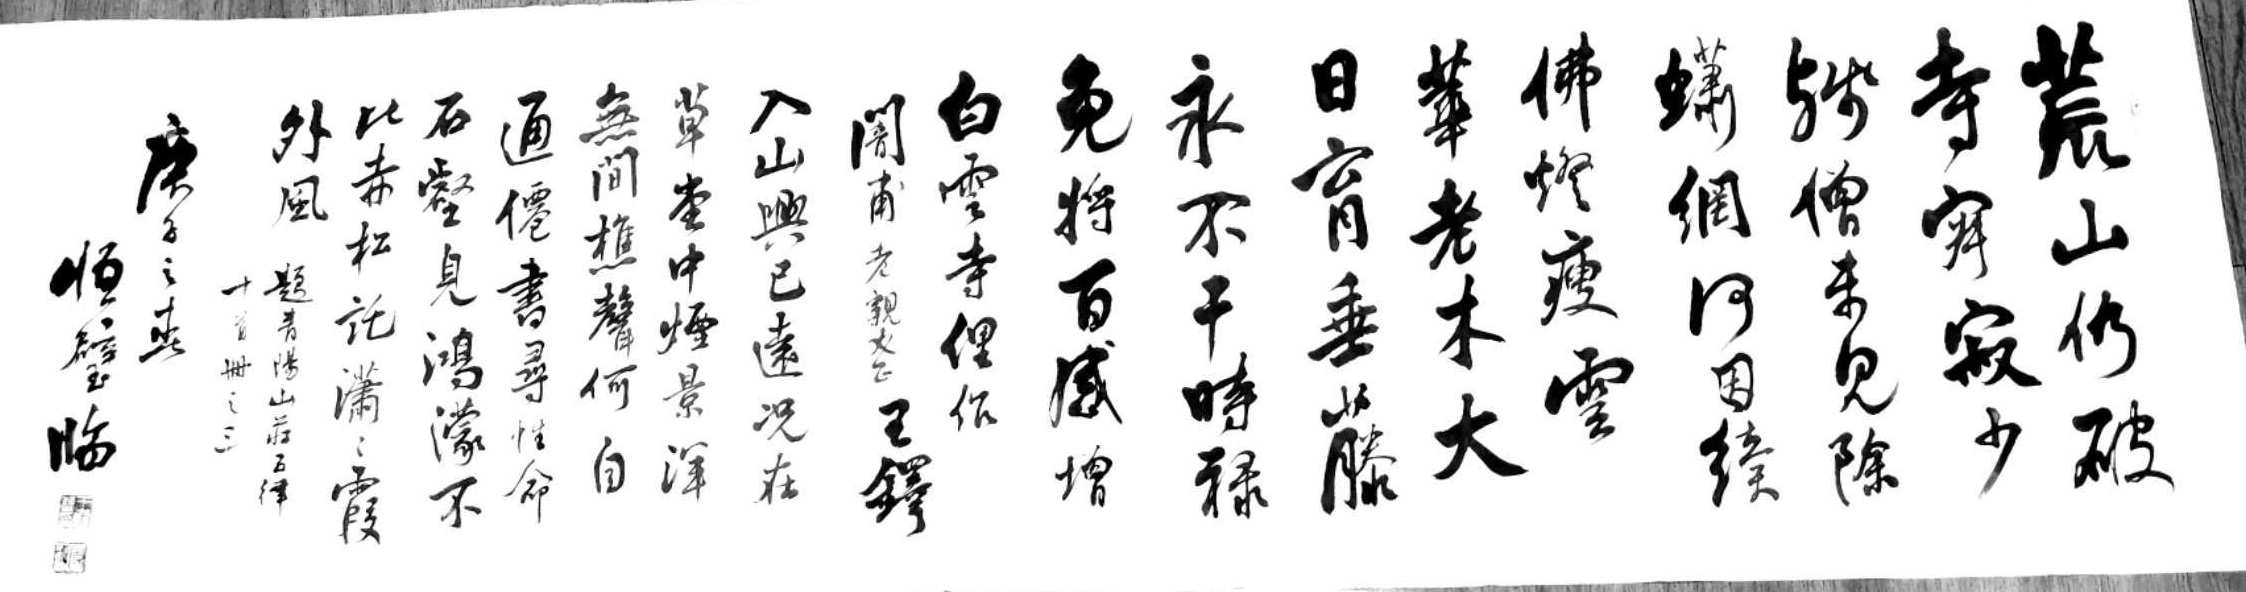 荒山仍破
寺寂寂少
殘僧未見除
蠨網何因續
佛燈瘦雲
華老木大
日宵垂藤
永不干時祿
免將百感增
白雲寺俚作
闇甫老親丈正 王鐸
入山興已遠况在
草堂中煙景渾
無間樵聲何自
通僊書尋性命
石壑見鴻濛不
比赤松託瀟〻霞
外風
題青陽山莊五律
十首冊之三
庚子之春
恒
臨